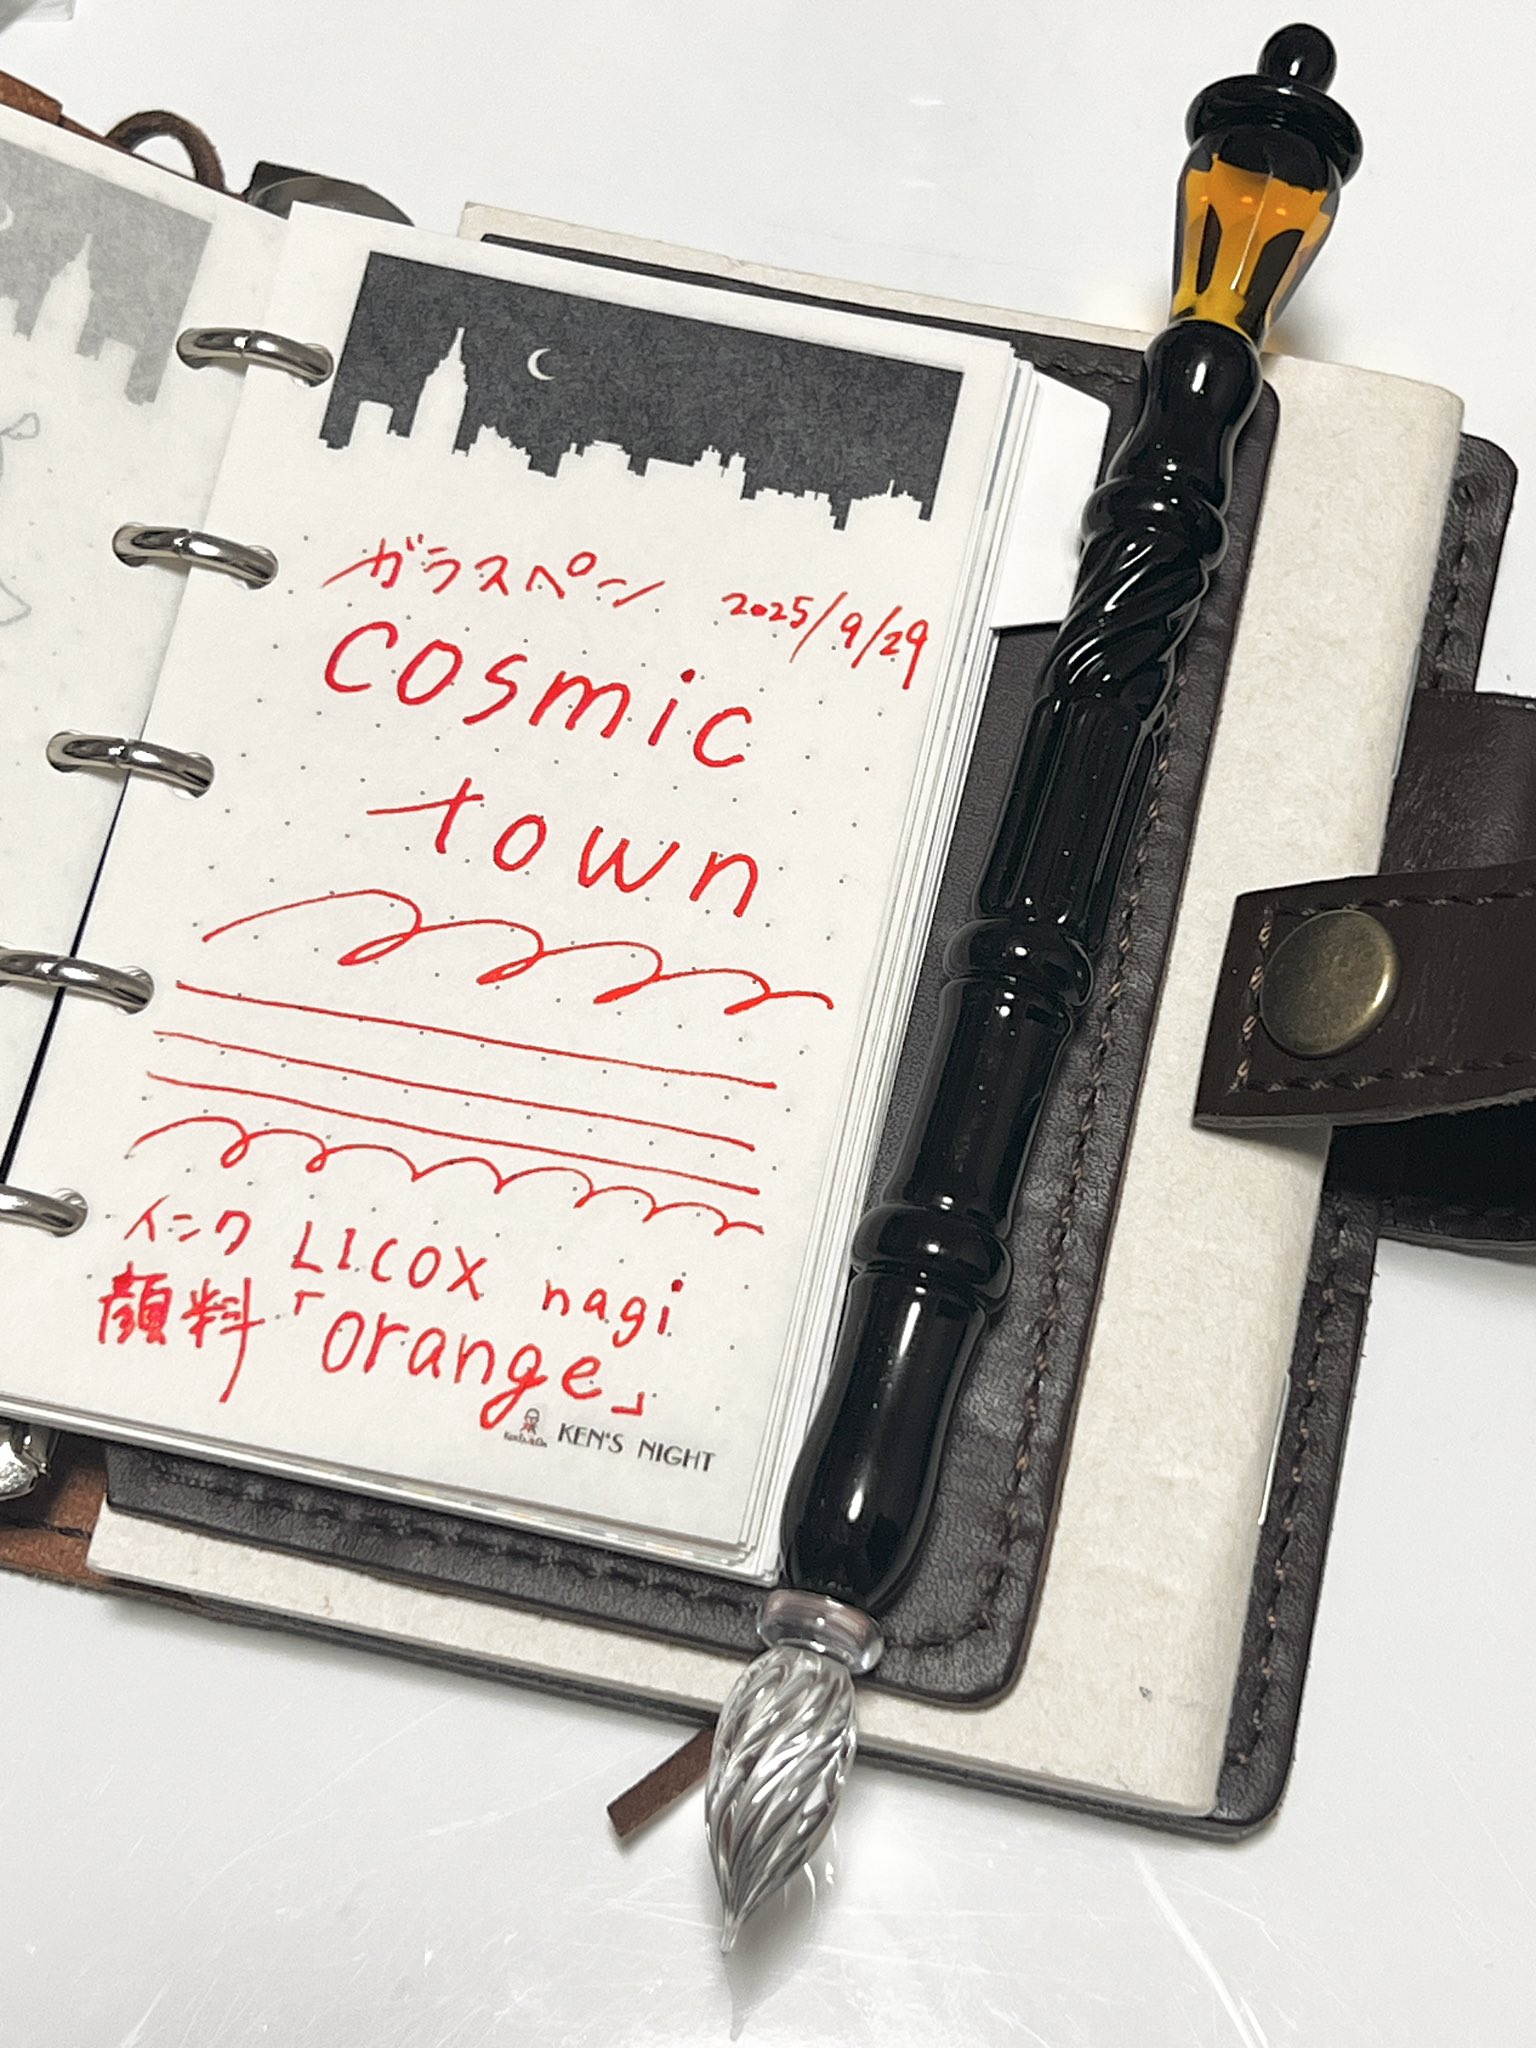 ガラスペン 2025/9/29
cosmic
town
インク LICOX nagi
顔料「orange」
KEN'S NIGHT